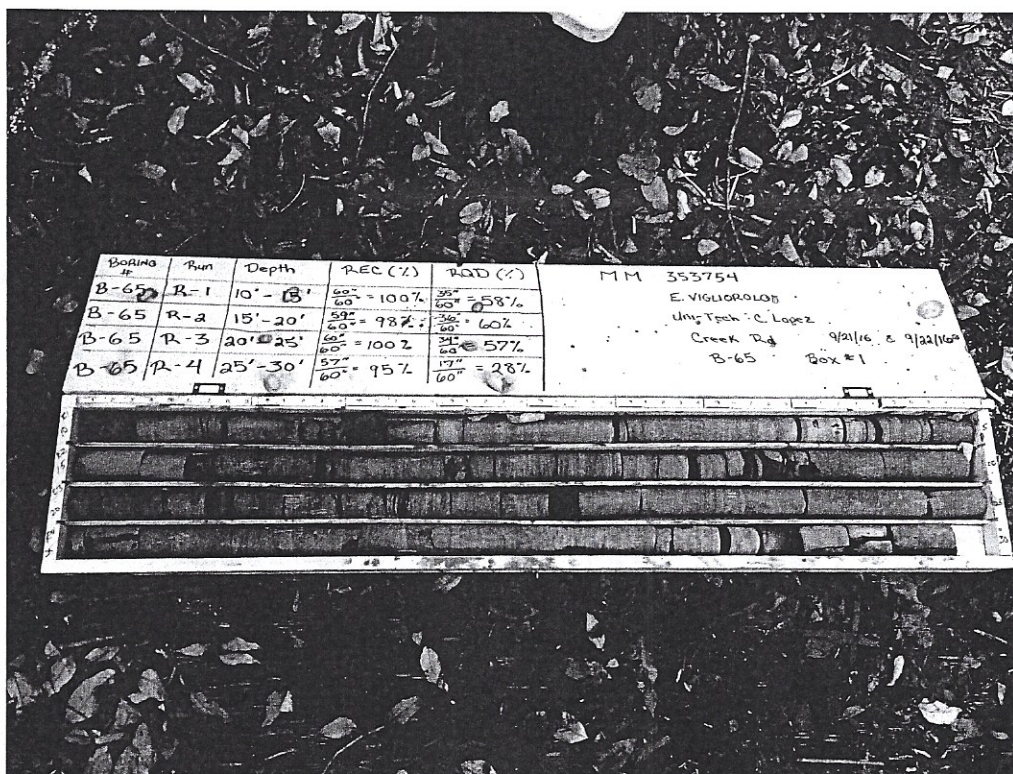 BORING # Run Depth REC (%) RQD (%)
B-65 R-1 10'- 60"/60" = 100% 35"/60" = 58%
B-65 R-2 15'-20' 59"/60" = 98% 36"/60" = 60%
B-65 R-3 20'-25' 60"/60" = 100% 34"/60" = 57%
B-65 R-4 25'-30' 57"/60" = 95% 17"/60" = 28%
MM 353754
E. VIGLIOROLO
Uni-Tech: C. Lopez
Creek Rd 9/21/16 & 9/22/16
B-65 Box #1